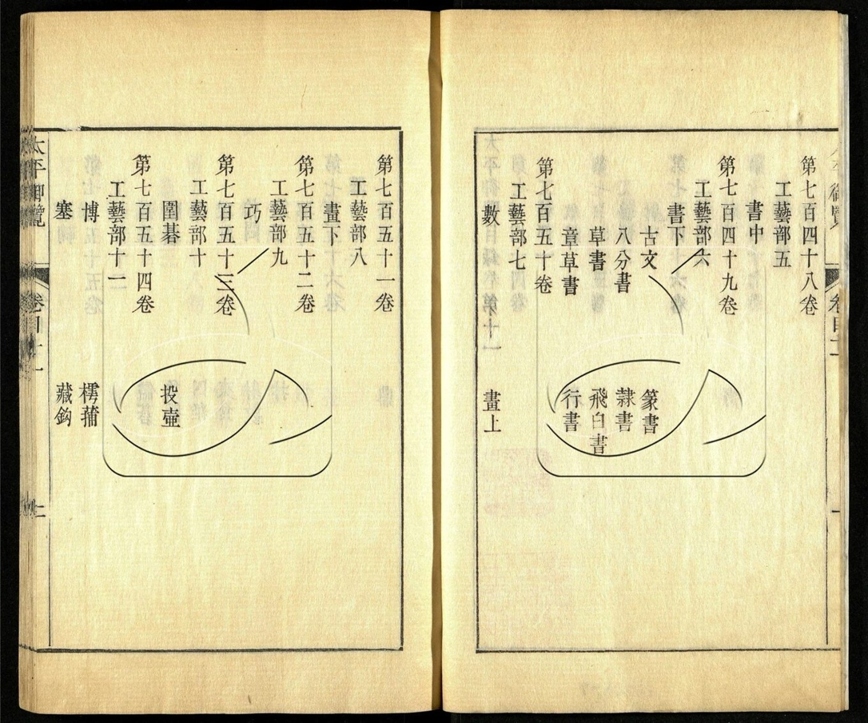 第七百四十八卷
工藝部五
書中
第七百四十九卷
工藝部六
書下
古文 篆書
八分書 隸書
草書 飛白書
章草書 行書
第七百五十卷
工藝部七
數 畫上
第七百五十一卷
工藝部八
畫下
第七百五十二卷
工藝部九
巧
第七百五十三卷
工藝部十
圍碁 投壷
第七百五十四卷
工藝部十一
博 樗蒱
塞 藏鈎
太平御覽